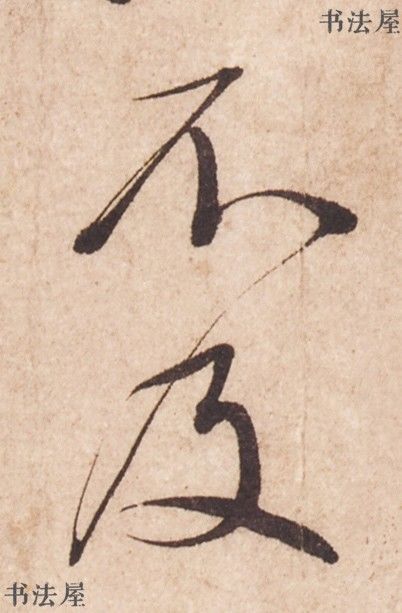 书法屋
不
及
书法屋